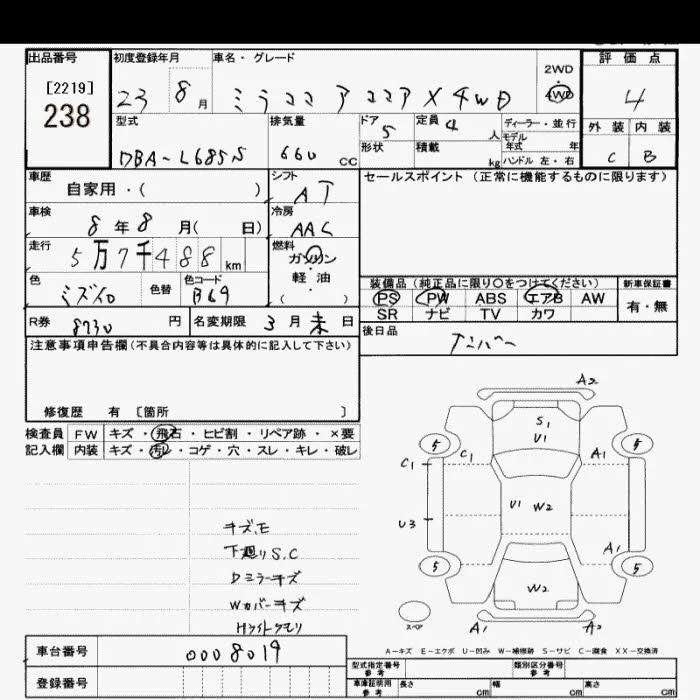 出品番号 初度登録年月 車名・グレード 評価点
[2219]
238
23 8月 ミラココア ココアX 4WD
2WD
4WD
4
外装 内装
C B
型式 排気量 ドア 定員 ディーラー・並行
DBA-L685S 660 CC 5 4 人
モデル年式 年
形状 積載 kg ハンドル 左・右
車歴 シフト セールスポイント (正常に機能するものに限ります)
自家用・( ) AT
車検 冷房
8年8月( 日) AAC
走行 燃料
5万7千488km ガソリン
・
軽油
( )
色 色替 色コード
ミズイロ B69
装備品 (純正品に限り○をつけてください) 新車保証書
PS PW ABS エアB AW 有・無
SR ナビ TV カワ
R券 8730円 名変期限 3月末日
後日品 ナンバー
注意事項申告欄(不具合内容等は具体的に記入して下さい)
修復歴 有 [箇所 ]
検査員 FW キズ・飛石・ヒビ割・リペア跡・×要
記入欄 内装 キズ・汚レ・コゲ・穴・スレ・キレ・破レ
A2
S1
U1
5 5
C1 C1 A1
U1 W2
U3
A1
5 5
W2
スペア
A1 A2
キズ、E
下廻りS.C
Dミラーキズ
Wカバーキズ
Hライトクモリ
A-キズ E-エクボ U-凹み W-補修跡 S-サビ C-腐食 XX-交換済
車台番号 0008019
型式指定番号 参考 類別区分番号 参考
登録番号
車庫証明用 参考 長さ cm 幅 cm 高さ cm